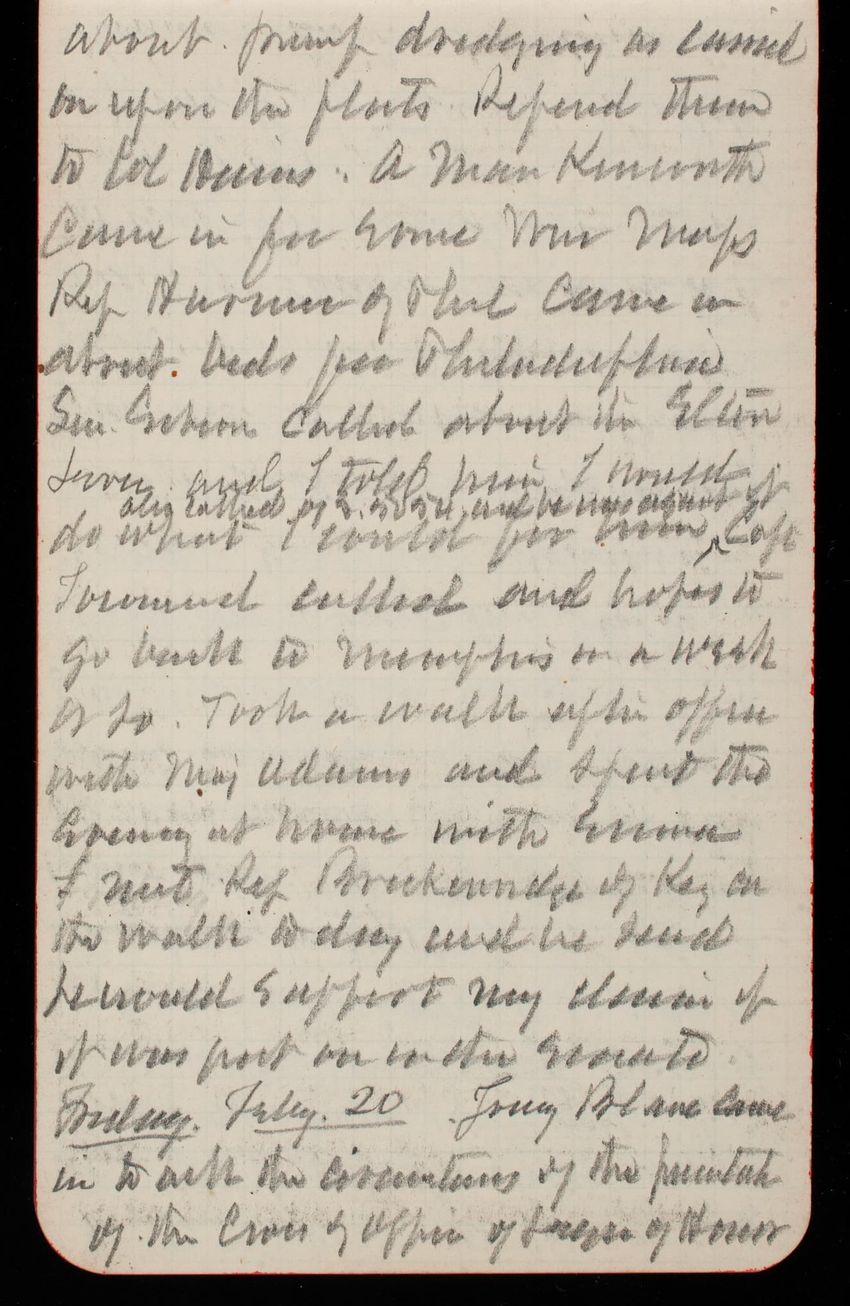 about pump dredging as carried
on upon the flats Refered them
to Col Hains. A Man Kenworth
Came in for Some War Maps
Rep Harmer of Phil Came in
about beds for Philadelphia
Sen. called about the Elten
and I told him I would
also called and he was against it
do what I could for him Capt
Townsend called and hopes to
go back to Memphis in a week
or so. Took a walk after office
with Maj Adams and Spent the
Evening at home with Emma
I met Rep Breckenridge of Key on
the walk to day and he said
he would Support my claim if
it was put on in the Senate
Friday. Feby. 20 came
in to ask the of the
of the Cross of Officer of Legion of Honor